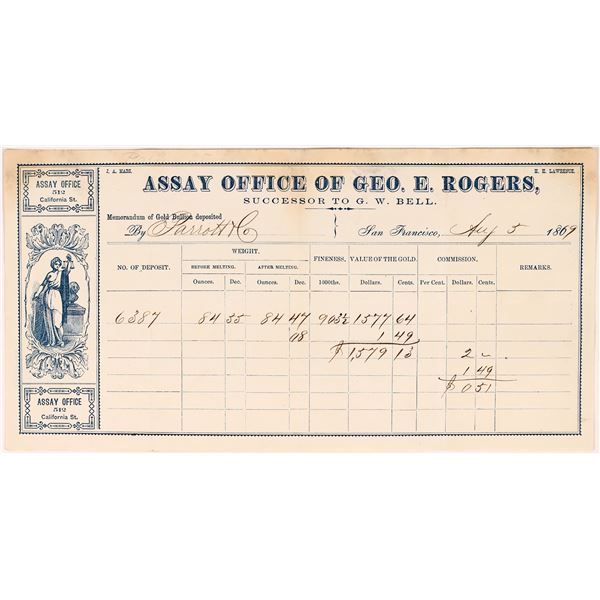 J. A. MARS.
H. H. LAWRENCE.
ASSAY OFFICE
512
California St.
ASSAY OFFICE OF GEO. E. ROGERS,
SUCCESSOR TO G. W. BELL.
Memorandum of Gold Bullion deposited
By Parrott & Co San Francisco, Aug 5 1869
NO. OF DEPOSIT. WEIGHT. FINENESS, VALUE OF THE GOLD. COMMISSION. REMARKS.
BEFORE MELTING. AFTER MELTING.
Ounces. Dec. Ounces. Dec. 1000ths. Dollars. Cents. Per Cent. Dollars. Cents.
6387 84 55 84 47 903½ 1577 64
08 1 49
$1,579 13 2 "
1 49
$0 51
ASSAY OFFICE
512
California St.